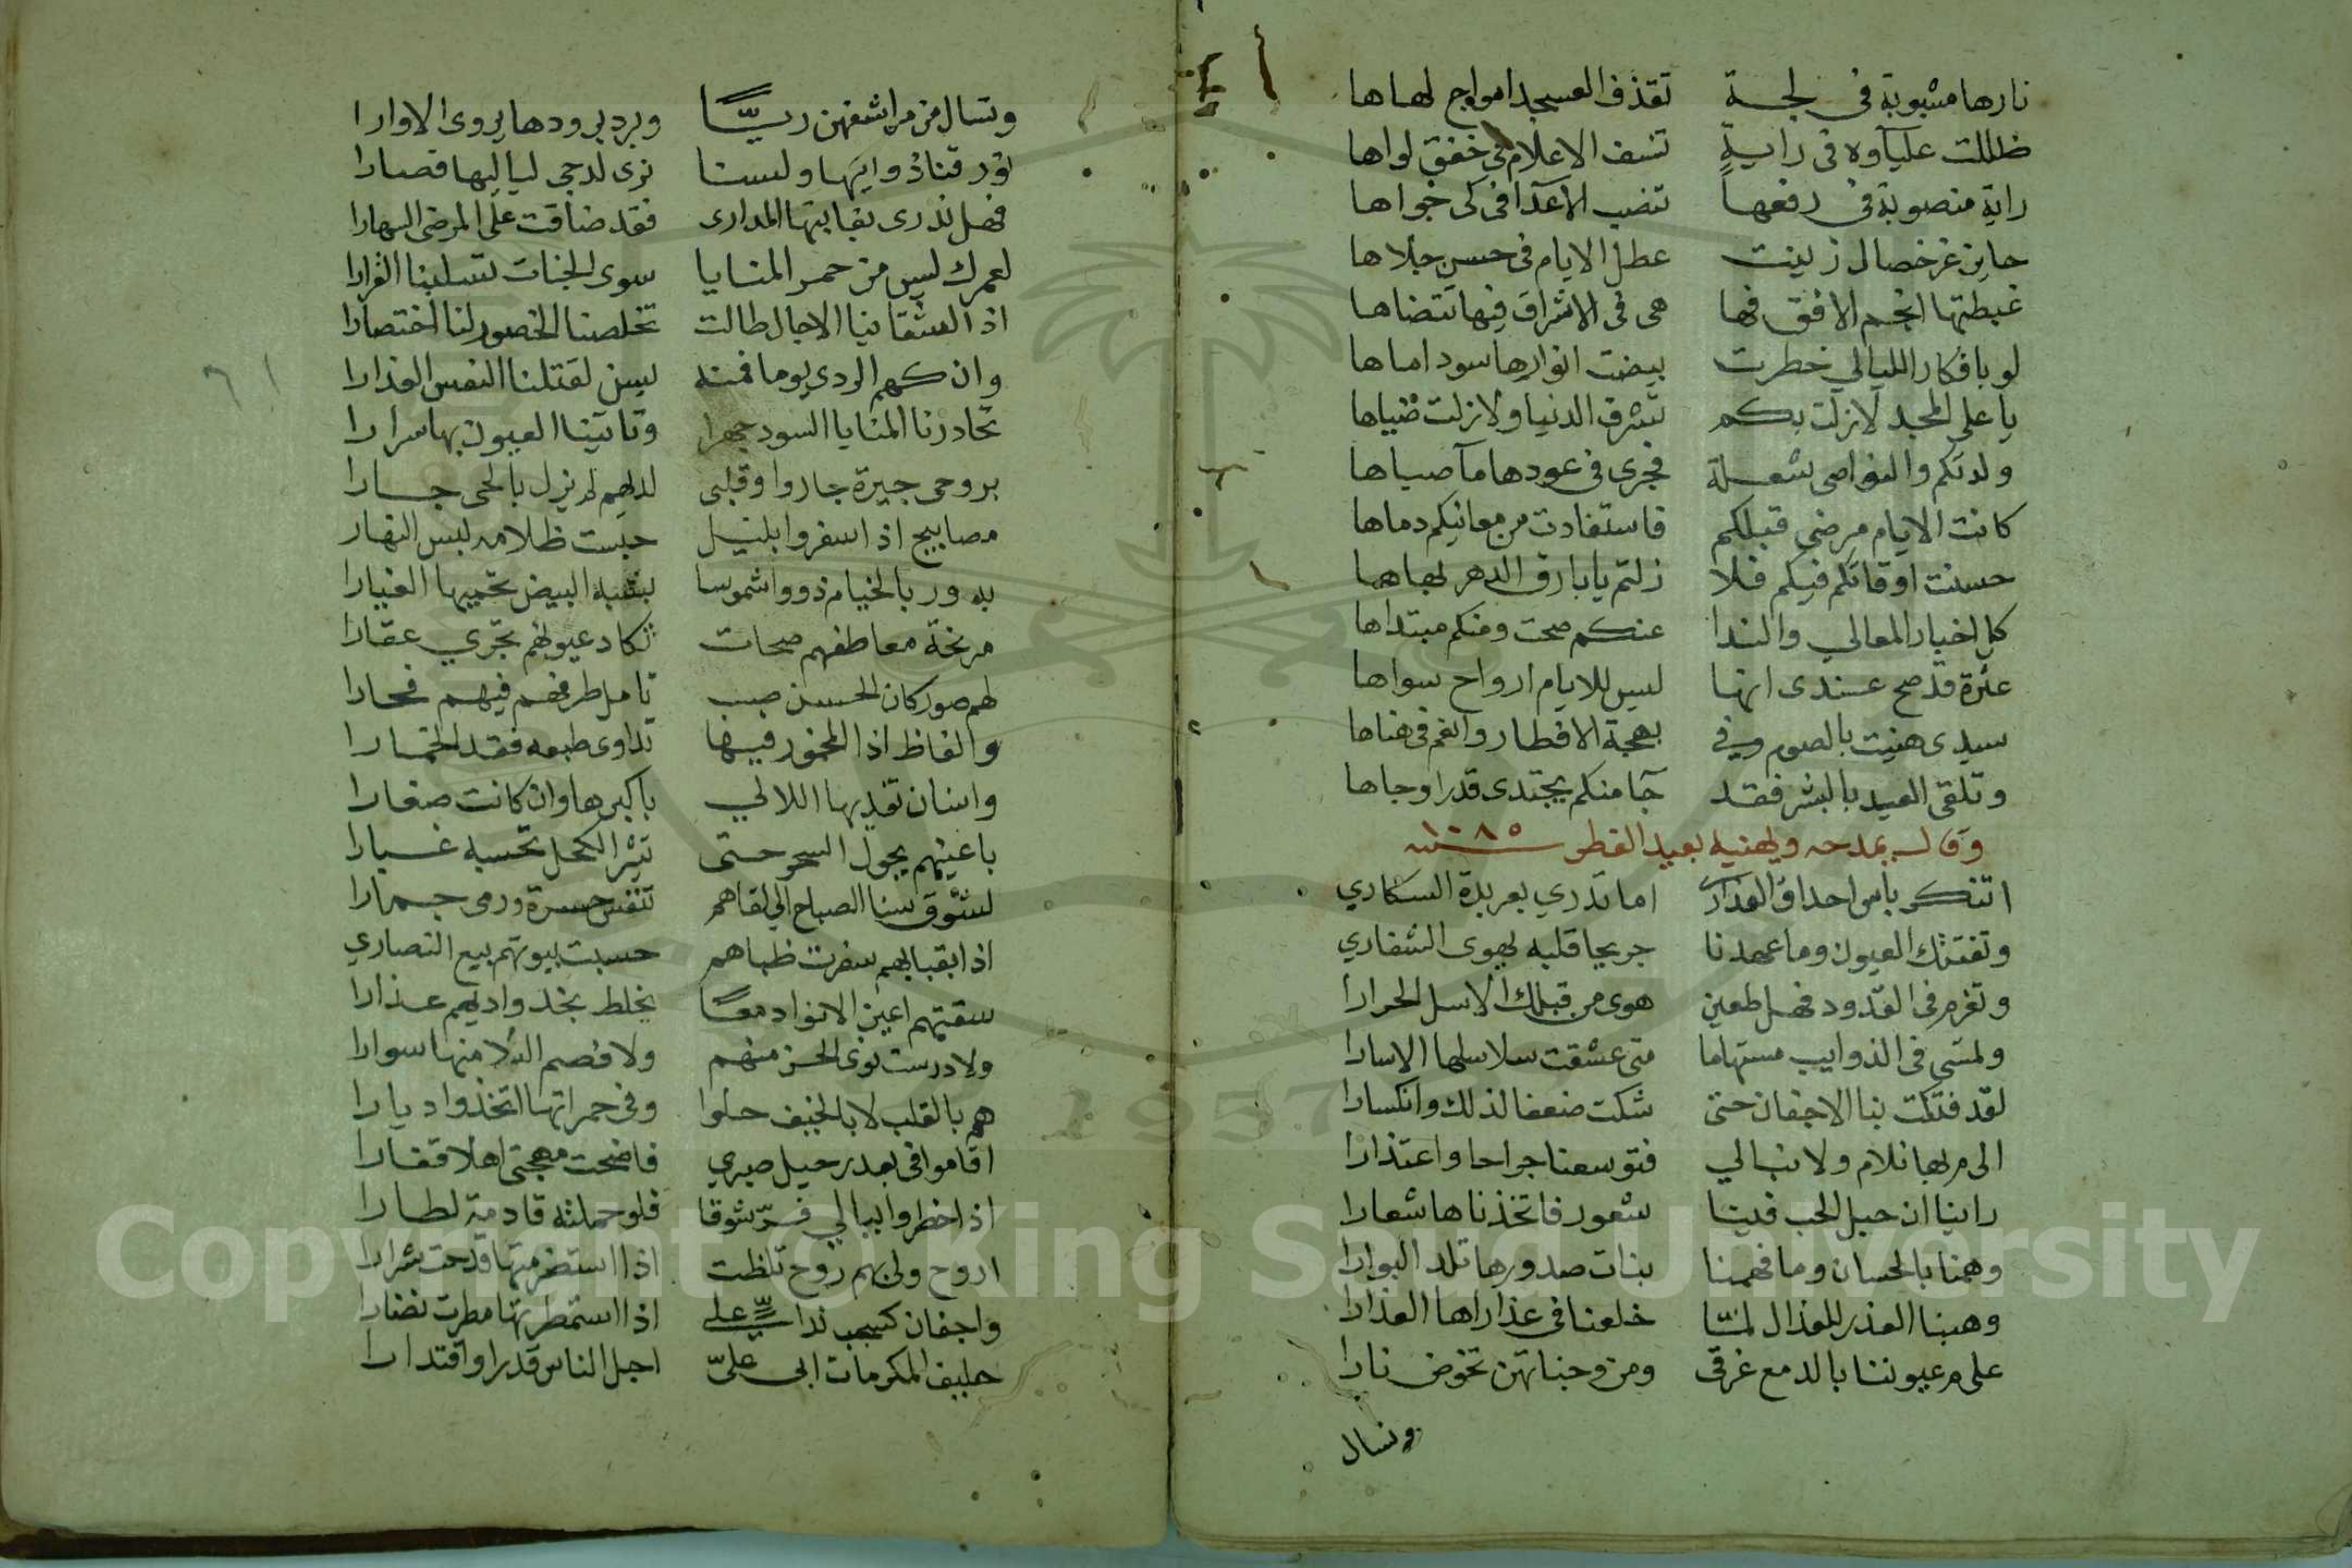 نارها مشبوبة في لجة تقذف العسجد امواج لهاها
ظللت علياوه في راية تنسف الاعلام في خفق لواها
راية منصوبة في رفعها تنصب الاعدا في كي جواها
حايز غر خصال زينت عطل الايام في حسن حلاها
غبطتها انجم الافق فها هي في الاشراق فيها تتضاها
لو بافكار الليالي خطرت بيضت انوارها سود اماها
يا علي المجد لازلت بكم تشرق الدنيا ولازلت ضياها
ولدتكم والنواصي شعلة فجرى في عودها مآ صباها
كانت الايام مرضى قبلكم فاستفادت من معانيكم دماها
حسنت اوقاتكم فيكم فلا زلتم يا بارق الدهر بهاها
كل اخبار المعالي والندا عنكم صحت ومنكم مبتداها
عترة قد صح عندي انها ليس للايام ارواح سواها
سيدي هنيت بالصوم وفي بهجة الافطار وانعم في هناها
وتلقى العيد بالبشر فقد جآ منكم يجتدي قدرا وجاها
وقال يمدحه ويهنيه بعيد الفطر سنة ١٠٨٥
اتنكر باس احداق العذارى اما تدري بعربدة السكاري
وتفتنك العيون وما عهدنا جريحا قلبه يهوى الشفاري
وتغرم في القدود فهل طعين هوى من قبلك الاسل الحرارا
وتمسي في الذوايب مستهاما متى عشقت سلاسلها الاسارا
لقد فتكت بنا الاجفان حتى شكت ضعفا لذلك وانكسارا
الى م بها نلام ولا نبالي فتوسعنا جراحا واعتذارا
راينا ان حبل الحب فينا شعور فاتخذناها شعارا
وهمنا بالحسان وما فهمنا بنات صدورها تلد البوارا
وهبنا العذر للعذال لمّا خلعنا في عذاراها العذارا
على م عيوننا بالدمع غرقى ومن وجناتهن تخوض نارا
ونسال
ونسال من مراشفهن ريّا وبرد برودها يروى الاوارا
تورقنا ذوايبها ولسنا نرى لدجى لياليها قصارا
فهل تدرى بغايتها المدارى فقد ضاقت على المرضى البهارا
لعمرك ليس من حمر المنايا سوى الجنات تسلبنا القرارا
اذ العشقا نيا الاجال طالت تخلصنا الخصور لنا اختصارا
وان كهم الردى يوما فمنه يسن لقتلنا النفس الغدارا
تحاذرنا المنايا السود جهرا وتاتينا العيون بها سرارا
بروحي جيرة جاروا وقلبي لديهم لم يزل بالحي جارا
مصابيح اذ اسفروا بليل حبست ظلامه لبس النهار
بدور بالخيام ذووا شموسا بشبه البيض تحميها الغيارا
مرنحة معاطفهم صحات تكاد عيونهم تجري عقارا
لهم صور كان الحسن صب تامل طرفهم فيهم فحارا
والفاظ اذا المخمور فيها تداوى طبعه فقد الخمارا
واسنان تفديها اللالي باكبرها وان كانت صغارا
باعينهم يجول السحر حتى تيثر الكحل تحسبه غبارا
لشوق سنا الصباح الى لقاهم تنفس حسرة ورمى جمارا
اذا بقبابهم سفرت ظباهم حسبت بيوتهم بيع النصارى
سقتهم اعين الانواد معا يخلط بخد واديهم عذارا
ولا درست نوى الحزن منهم ولا فصم البلا منها سوارا
هم بالقلب لا بالخيف حلوا وفي جمراتها اتخذوا ديارا
اقاموا في بعد رحيل صبري فاضحت مهجتي اهلا قفارا
اذا خطروا ببالي فرّ شوقا فلو حملته قادمة لطارا
اروح ولي بهم روح تلظت اذا استضرمتها قدحت شرارا
واجفان كسحب ندا علي اذا استمطرتها مطرت نضارا
حليف المكرمات ابي عليّ اجل الناس قدرا واقتدارا
Copyright © King Saud University
1957